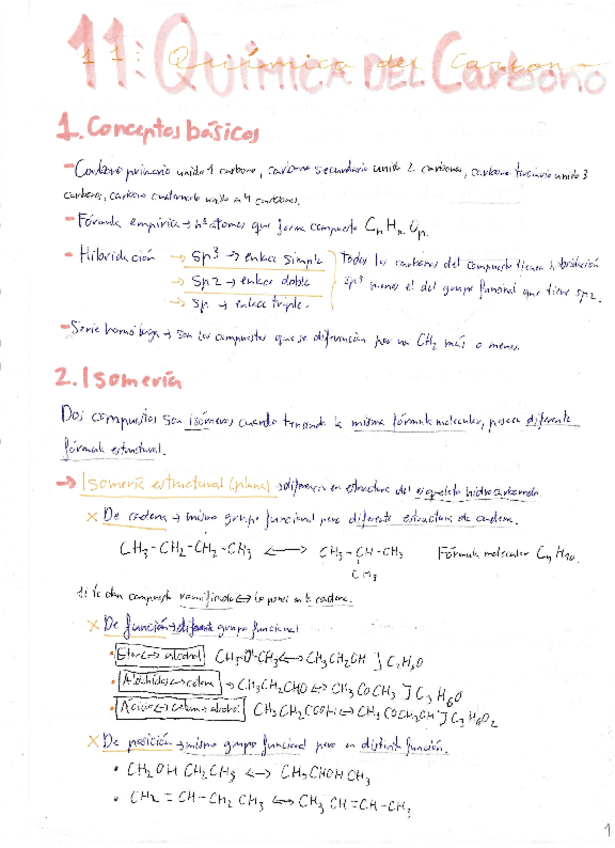 11: Química del Carbono
1. Conceptos básicos
- Carbono primario unido 1 carbono, carbono secundario unido 2 carbonos, carbono terciario unido 3
carbonos, carbono cuaternario unido a 4 carbonos.
- Fórmula empírica → nº átomos que forma compuesto CnHnOn.
- Hibridación → sp³ → enlace simple } Todos los carbonos del compuesto tienen hibridación
→ sp2 → enlace doble sp³ menos el del grupo funcional que tiene sp2.
→ sp → enlace triple.
- Serie homóloga → son los compuestos que se diferencian por un CH₂ más o menos.
2. Isomería
Dos compuestos son isómeros cuando teniendo la misma fórmula molecular, poseen diferente
fórmula estructural.
→ Isomería estructural (plana) → diferencia en estructura del esqueleto hidrocarbonado.
x De cadena → mismo grupo funcional pero diferente estructura de cadena.
CH₃-CH₂-CH₂-CH₃ ↔ CH₃-CH-CH₃ Fórmula molecular C₄H₁₀.
CH₃
Si te dan compuesto ramificado ↔ lo pones en cadena.
x De función → diferente grupo funcional
• Éter ↔ alcohol CH₃-O-CH₃ ↔ CH₃CH₂OH ] C₂H₆O
• Aldehídos ↔ cetona → CH₃CH₂CHO ↔ CH₃COCH₃ ] C₃H₆O
• Ácido ↔ cetona + alcohol CH₃CH₂COOH ↔ CH₃COCH₂OH ] C₃H₆O₂
x De posición → mismo grupo funcional pero en distinta función.
• CH₂OHCH₂CH₃ ↔ CH₃CHOHCH₃
• CH₂=CH-CH₂CH₃ ↔ CH₃CH=CH-CH₃
1